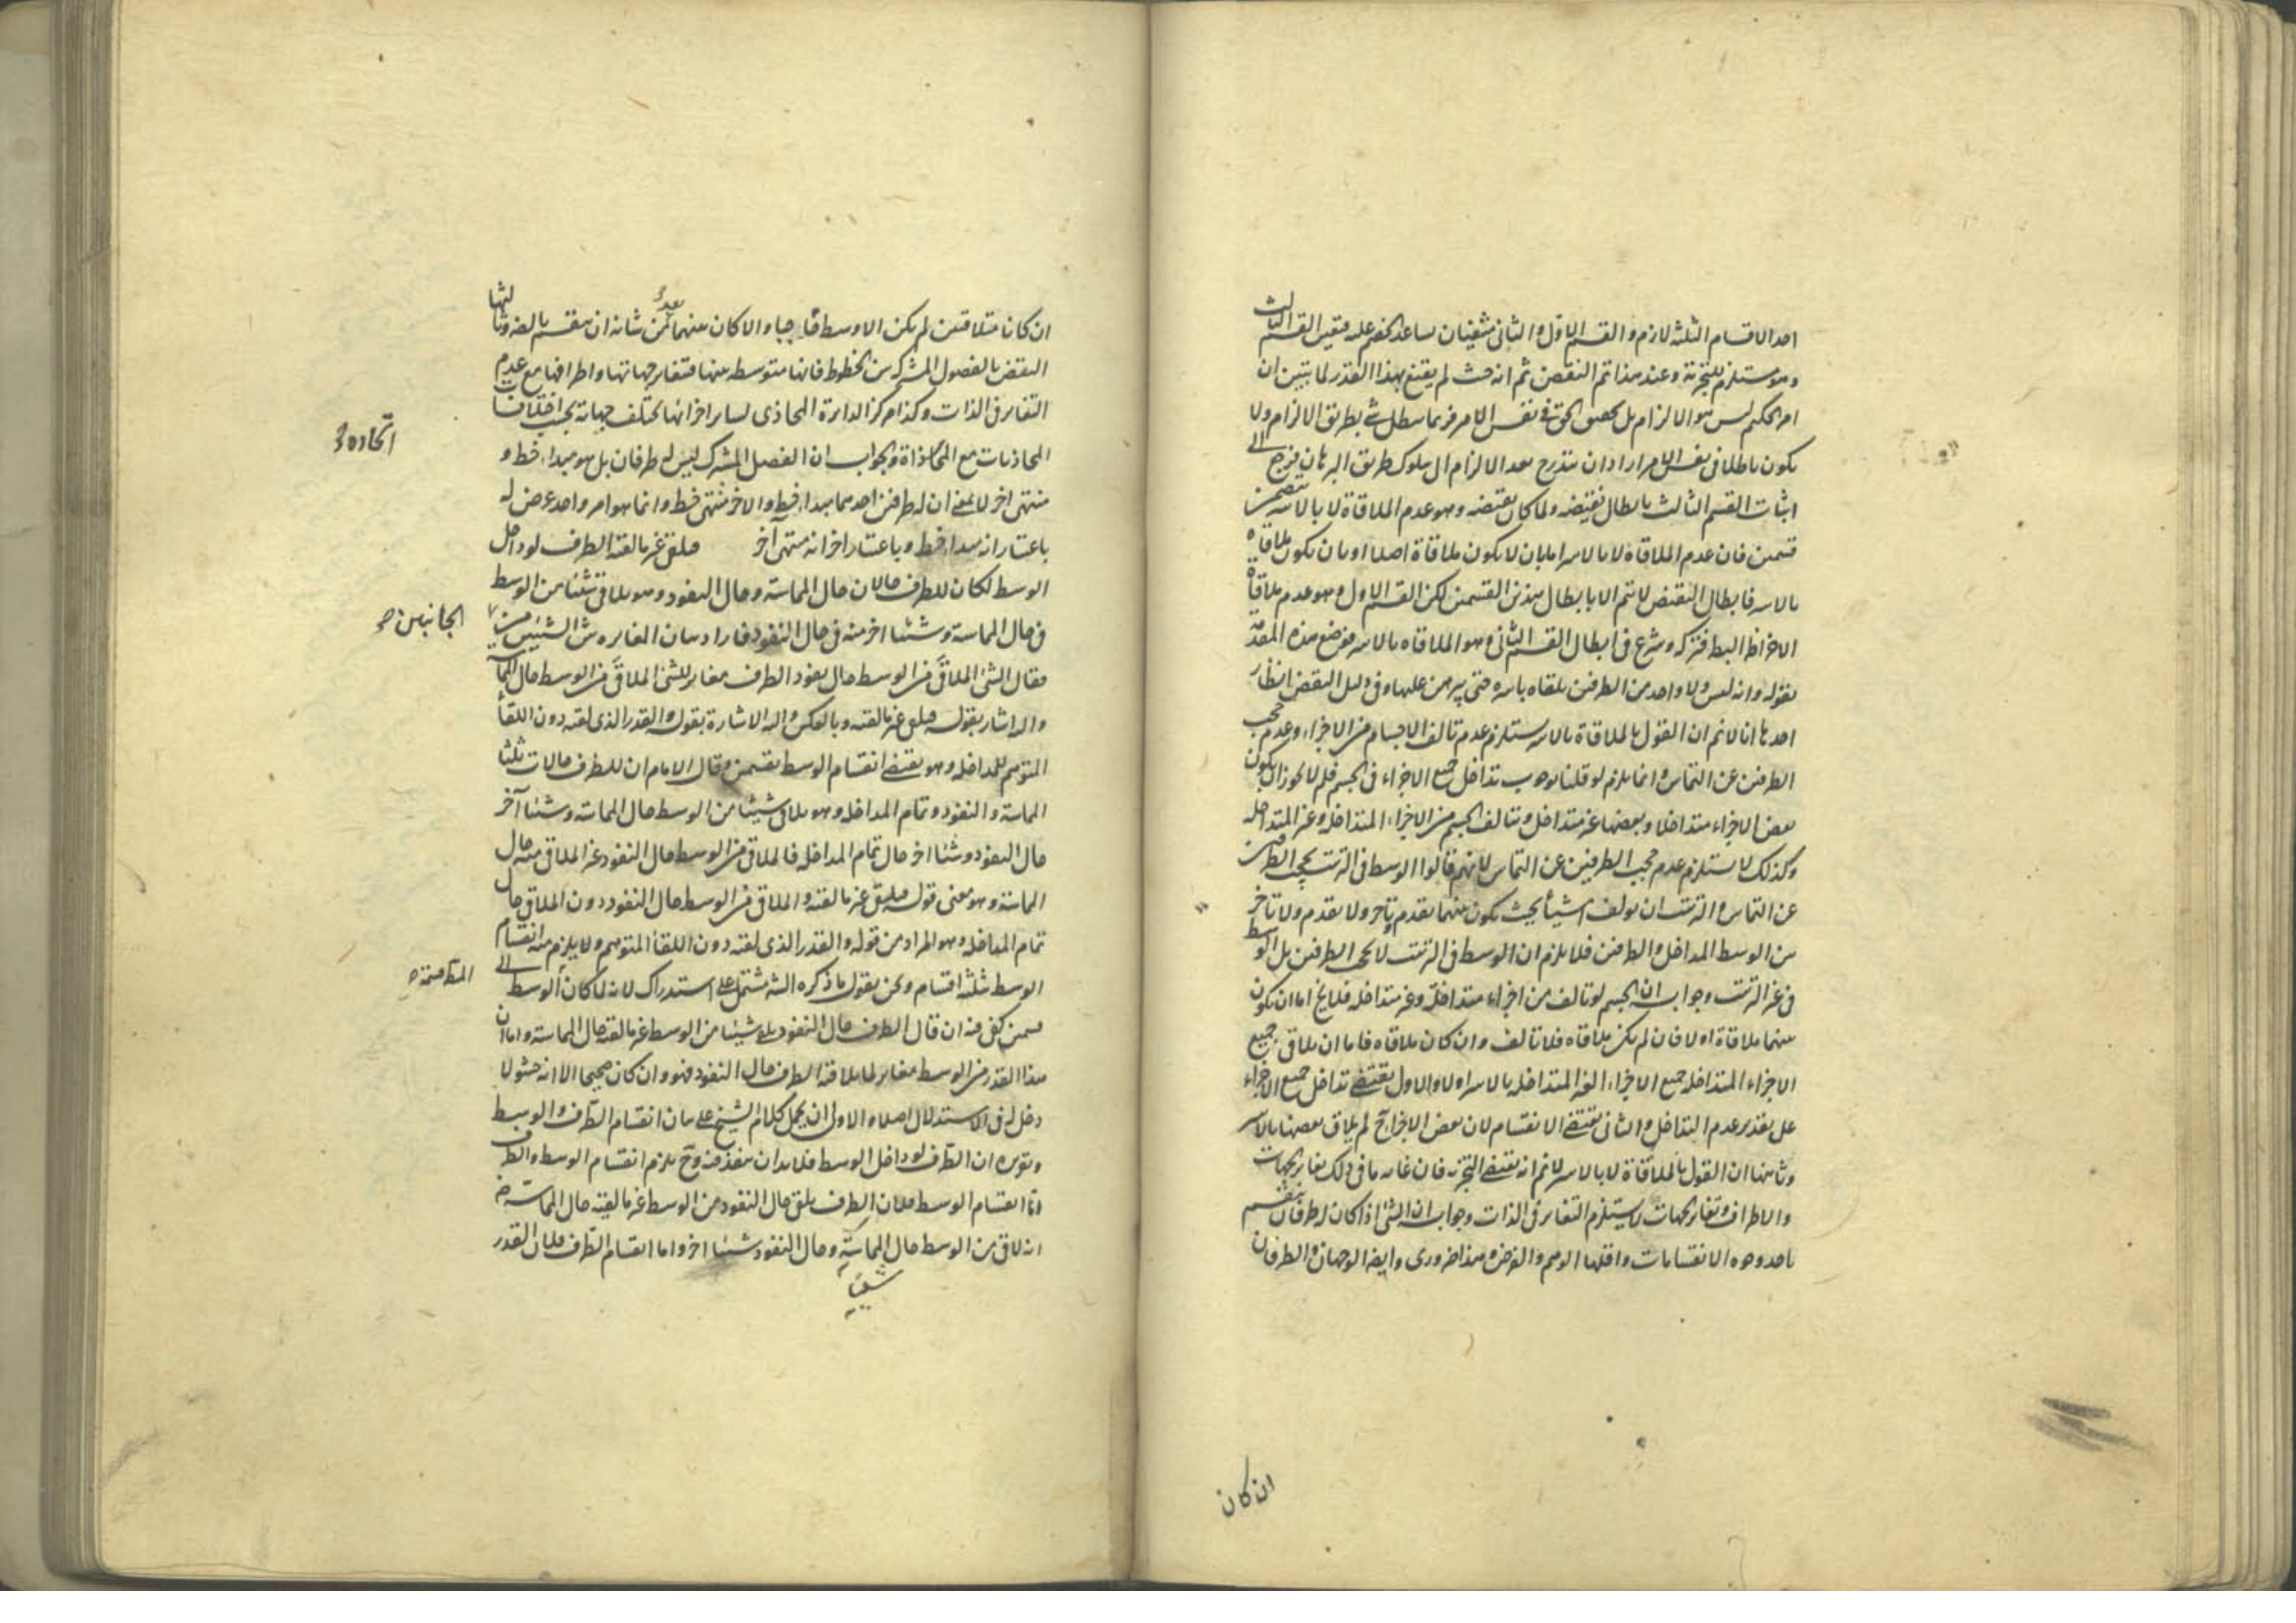 احد الاقسام الثلثة لازم والقسم الاول والثانى منتفيان ساعد الخصم عليه فتعين القسم الثالث
وهو مستلزم للتجزية وعند هذا تم النقض ثم انه حيث لم يقنع بهذا القدر لما يتبين ان
امر الحكيم ليس هو الالزام بل تحقيق الحق فى نفس الامر فربما يبطل شئ بطريق الالزام ولا
يكون باطلا فى نفس الامر اراد ان يتدرج بعد الالزام الى سلوك طريق البرهان فرجع الى
اثبات القسم الثالث بابطال نقيضه ولما كان نقيضه وهو عدم الملاقاة لا بالاسر يتضمن
قسمين فان عدم الملاقاة لا بالاسر اما بان لا يكون ملاقاة اصلا او بان يكون ملاقاة
بالاسر فابطال النقيض لا يتم الا بابطال هذين القسمين لكن القسم الاول وهو عدم ملاقاة
الاجزا ظ البط فتركه وشرع فى ابطال القسم الثانى وهو الملاقاه بالاسر فوضع هذه المقدمة
بقوله وانه ليس ولا واحد من الطرفين يلقاه باسره حتى يبرهن عليها وفى دليل النقض انظار
احدها انا لا نم ان القول بالملاقاة بالاسر يستلزم عدم تالف الاجسام من الاجزاء وعدم حجب
الطرفين عن التماس وانما يلزم لو قلنا بوجوب تداخل جميع الاجزاء فى الجسم فلم لا يجوز ان يكون
بعض الاجزاء متداخلا وبعضها غير متداخل ويتالف الجسم من الاجزاء المتداخلة وغير المتداخلة
وكذلك لا يستلزم عدم حجب الطرفين عن التماس لانهم قالوا الوسط فى الترتيب يحجب الطرفين
عن التماس والترتيب ان يولف اشياء بحيث يكون بينهما تقدم وتاخر ولا تقدم ولا تاخر
بين الوسط المداخل والطرفين فلا يلزم ان الوسط فى الترتيب لا يحجب الطرفين بل الوسط
فى غير الترتيب وجوابه ان الجسم لو تالف من اجزاء متداخلة وغير متداخلة فلا يخ اما ان يكون
بينهما ملاقاة او لا فان لم يكن ملاقاه فلا تالف وان كان ملاقاه فاما ان يلاقى جميع
الاجزاء المتداخلة جميع الاجزاء الغير المتداخلة بالاسر او لا والاول يقتضى تداخل جميع الاجزاء
على تقدير عدم التداخل والثانى يقتضى الانقسام لان بعض الاجزاء ح لم يلاق بعضها بالاسر
وثانيها ان القول بالملاقاة لا بالاسر لا نم انه يقتضى التجزية فان غاية ما فى ذلك تغاير الجهات
والاطراف وتغاير الجهات لا يستلزم التغاير فى الذات وجوابه ان الشئ اذا كان له طرفان ينقسم
باحد وجوه الانقسامات واقلها الوهم والفرض وهذا ضرورى وايضا الوجهان والطرفان
ان كان
ان كانا متلاقيين لم يكن الاوسط حاجبا والا كان بينهما بعد فمن شانه ان ينقسم بالضرورة وثالثها
النقض بالفصول المشتركة بين الخطوط فانها متوسطة بينها فتتغاير جهاتها واطرافها مع عدم
التغاير فى الذات وكذا مركز الدايرة المحاذى لساير اجزائها تختلف جهاته بحسب اختلاف
المحاذيات مع اتحاده
المحاذاة والجواب ان الفصل المشترك ليس له طرفان بل هو مبداء خط و
منتهى اخر لا بمعنى ان له طرفين احدهما مبداء خط والاخر منتهى خط وانما هو امر واحد عرض له
باعتبار انه مبداء خط وباعتبار اخر انه منتهى آخر فيلقى غير ما لقيه الطرف لو داخل
الوسط لكان للطرف حالان حال المماسة وحال النفود وهو يلاقى شيئا من الوسط
فى حال المماسة وشيئا اخر منه فى حال النفود فاراد بيان المغايرة بين الشيئين من
الجانبين صح
فقال الشئ الملاقى من الوسط حال نفود الطرف مغاير للشئ الملاقى من الوسط حال المماسة
واليه اشار بقوله فيلقى غير ما لقيه وبالعكس واليه الاشارة بقوله والقدر الذى لقيه دون اللقاء
المتوهم للمداخلة وهو يقتضى انقسام الوسط بقسمين وقال الامام ان للطرف حالات ثلثا
المماسة والنفود وتمام المداخلة وهو يلاقى شيئا من الوسط حال المماسة وشيئا آخر
حال النفود وشيئا اخر حال تمام المداخلة فالملاقى من الوسط حال النفود غير الملاقى منه حال
المماسة وهو معنى قوله فيلقى غير ما لقيه والملاقى من الوسط حال النفود دون الملاقى حال
تمام المداخلة وهو المراد من قوله والقدر الذى لقيه دون اللقاء المتوهم ولا يلزم منه انقسام
الوسط ثلثة اقسام ونحن نقول ما ذكره الشه مشتمل على استدراك لانه لما كان الوسط الى
قسمين كفى فيه ان قال الطرف حال النفود يلقى شيئا من الوسط غير ما لقيه حال المماسة واما ان
هذا القدر من الوسط مغاير لما يلاقيه الطرف حال النفود فهو وان كان صحيحا الا انه حشو لا
دخل له فى الاستدلال اصلا والاولى ان يحمل كلام الشيخ على بيان انقسام الطرف والوسط
وتقريره ان الطرف لو داخل الوسط فلا بد ان ينفذ فيه وح يلزم انقسام الوسط والطرف
اما انقسام الوسط فلان الطرف يلقى حال النفود من الوسط غير ما لقيه حال المماسة
انه لاقى من الوسط حال المماسة وحال النفود شيئا اخر واما انقسام الطرف فلان القدر